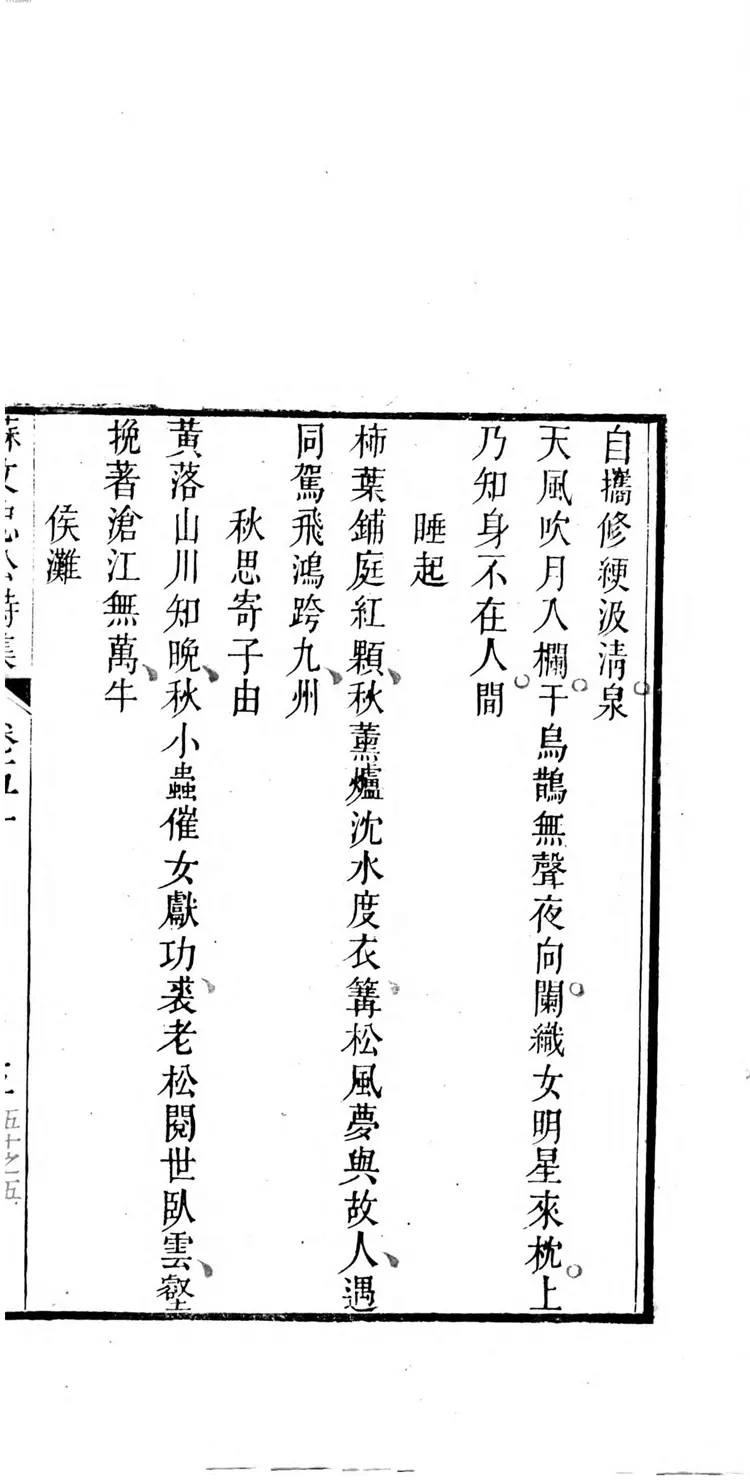 自攜修綆汲清泉
天風吹月入欄干烏鵲無聲夜向闌織女明星來枕上
乃知身不在人間
睡起
柿葉鋪庭紅顆秋薰爐沈水度衣篝松風夢與故人遇
同駕飛鴻跨九州
秋思寄子由
黃落山川知晚秋小蟲催女獻功裘老松閱世臥雲壑
挽著滄江無萬牛
侯灘
蘇文忠公詩集
卷五十
五十之五